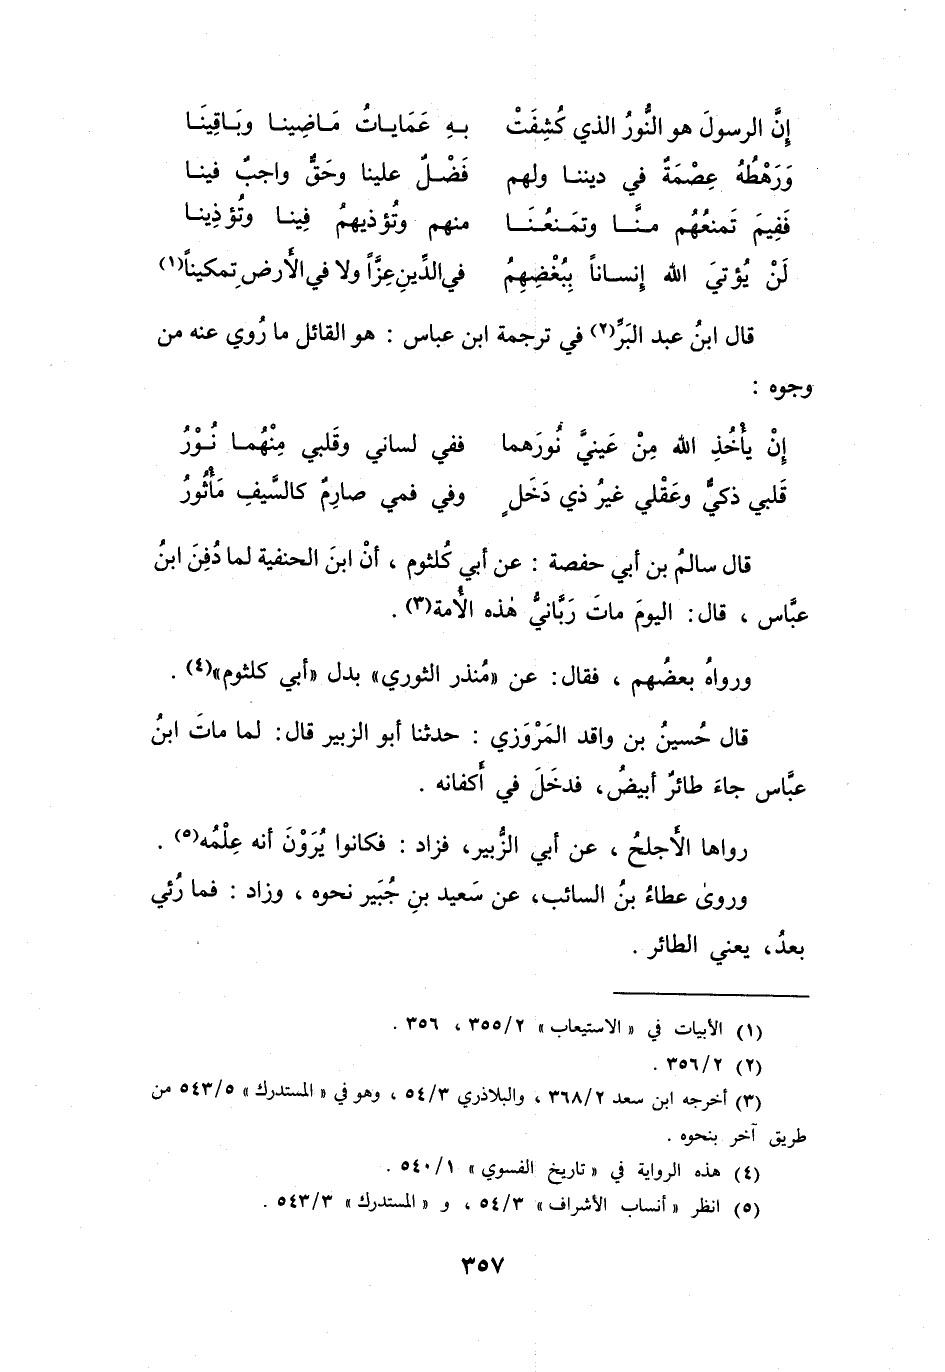 إِنَّ الرسولَ هو النُّورُ الذي كُشِفَتْ بـهِ عَمَايـاتُ مَـاضِينـا وبَـاقِينَـا
وَرَهْطُهُ عِصْمَةٌ في ديننـا ولهم فَضْـلٌ علينا وحَقٌّ واجبٌ فينـا
فَفِيمَ تَمنعُهُم منَّـا وتمَنعُنَـا منهم وتُؤذيهمُ فِينـا وتُؤذِينـا
لَنْ يُؤتيَ الله إِنسـاناً بِبُغْضِهِمُ في الدِّينِ عِزَّاً ولا في الأَرضِ تمكيناً(١)
قال ابنُ عبد البَرِّ(٢) في ترجمة ابن عباس : هو القائل ما رُوي عنه من
وجوه :
إِنْ يأْخُذِ الله مِنْ عَينيَّ نُورَهما ففي لساني وقَلبي مِنْهُمـا نُـوْرُ
قَلبي ذكيٌّ وعَقْلي غيرُ ذي دَخَلٍ وفي فمي صارِمٌ كالسَّيفِ مَأْثُورُ
قال سالمُ بن أبي حفصة : عن أبي كُلثوم ، أنْ ابنَ الحنفية لما دُفِنَ ابنُ
عبَّاس ، قال: اليومَ ماتَ رَبَّانيُّ هٰذه الأُمة(٣) .
ورواهُ بعضُهم ، فقال: عن «مُنذر الثوري» بدل «أبي كلثوم»(٤) .
قال حُسينُ بن واقد المَرْوَزي : حدثنا أبو الزبير قال: لما ماتَ ابنُ
عبَّاس جاءَ طائرٌ أبيضُ، فدخَلَ في أَكفانه .
رواها الأَجلحُ ، عن أبي الزُّبير، فزاد : فكانوا يُرَوْنَ أنه عِلْمُه(٥) .
وروىٰ عطاءُ بنُ السائب، عن سَعيد بنِ جُبَير نحوه ، وزاد : فما رُئي
بعدُ، يعني الطائر .
(١) الأبيات في « الاستيعاب » ٣٥٥/٢ ، ٣٥٦ .
(٢) ٣٥٦/٢ .
(٣) أخرجه ابن سعد ٣٦٨/٢ ، والبلاذري ٥٤/٣ ، وهو في « المستدرك » ٥٤٣/٥ من
طريق آخر بنحوه .
(٤) هذه الرواية في « تاريخ الفسوي » ٥٤٠/١ .
(٥) انظر « أنساب الأشراف » ٥٤/٣ ، و « المستدرك » ٥٤٣/٣ .
٣٥٧